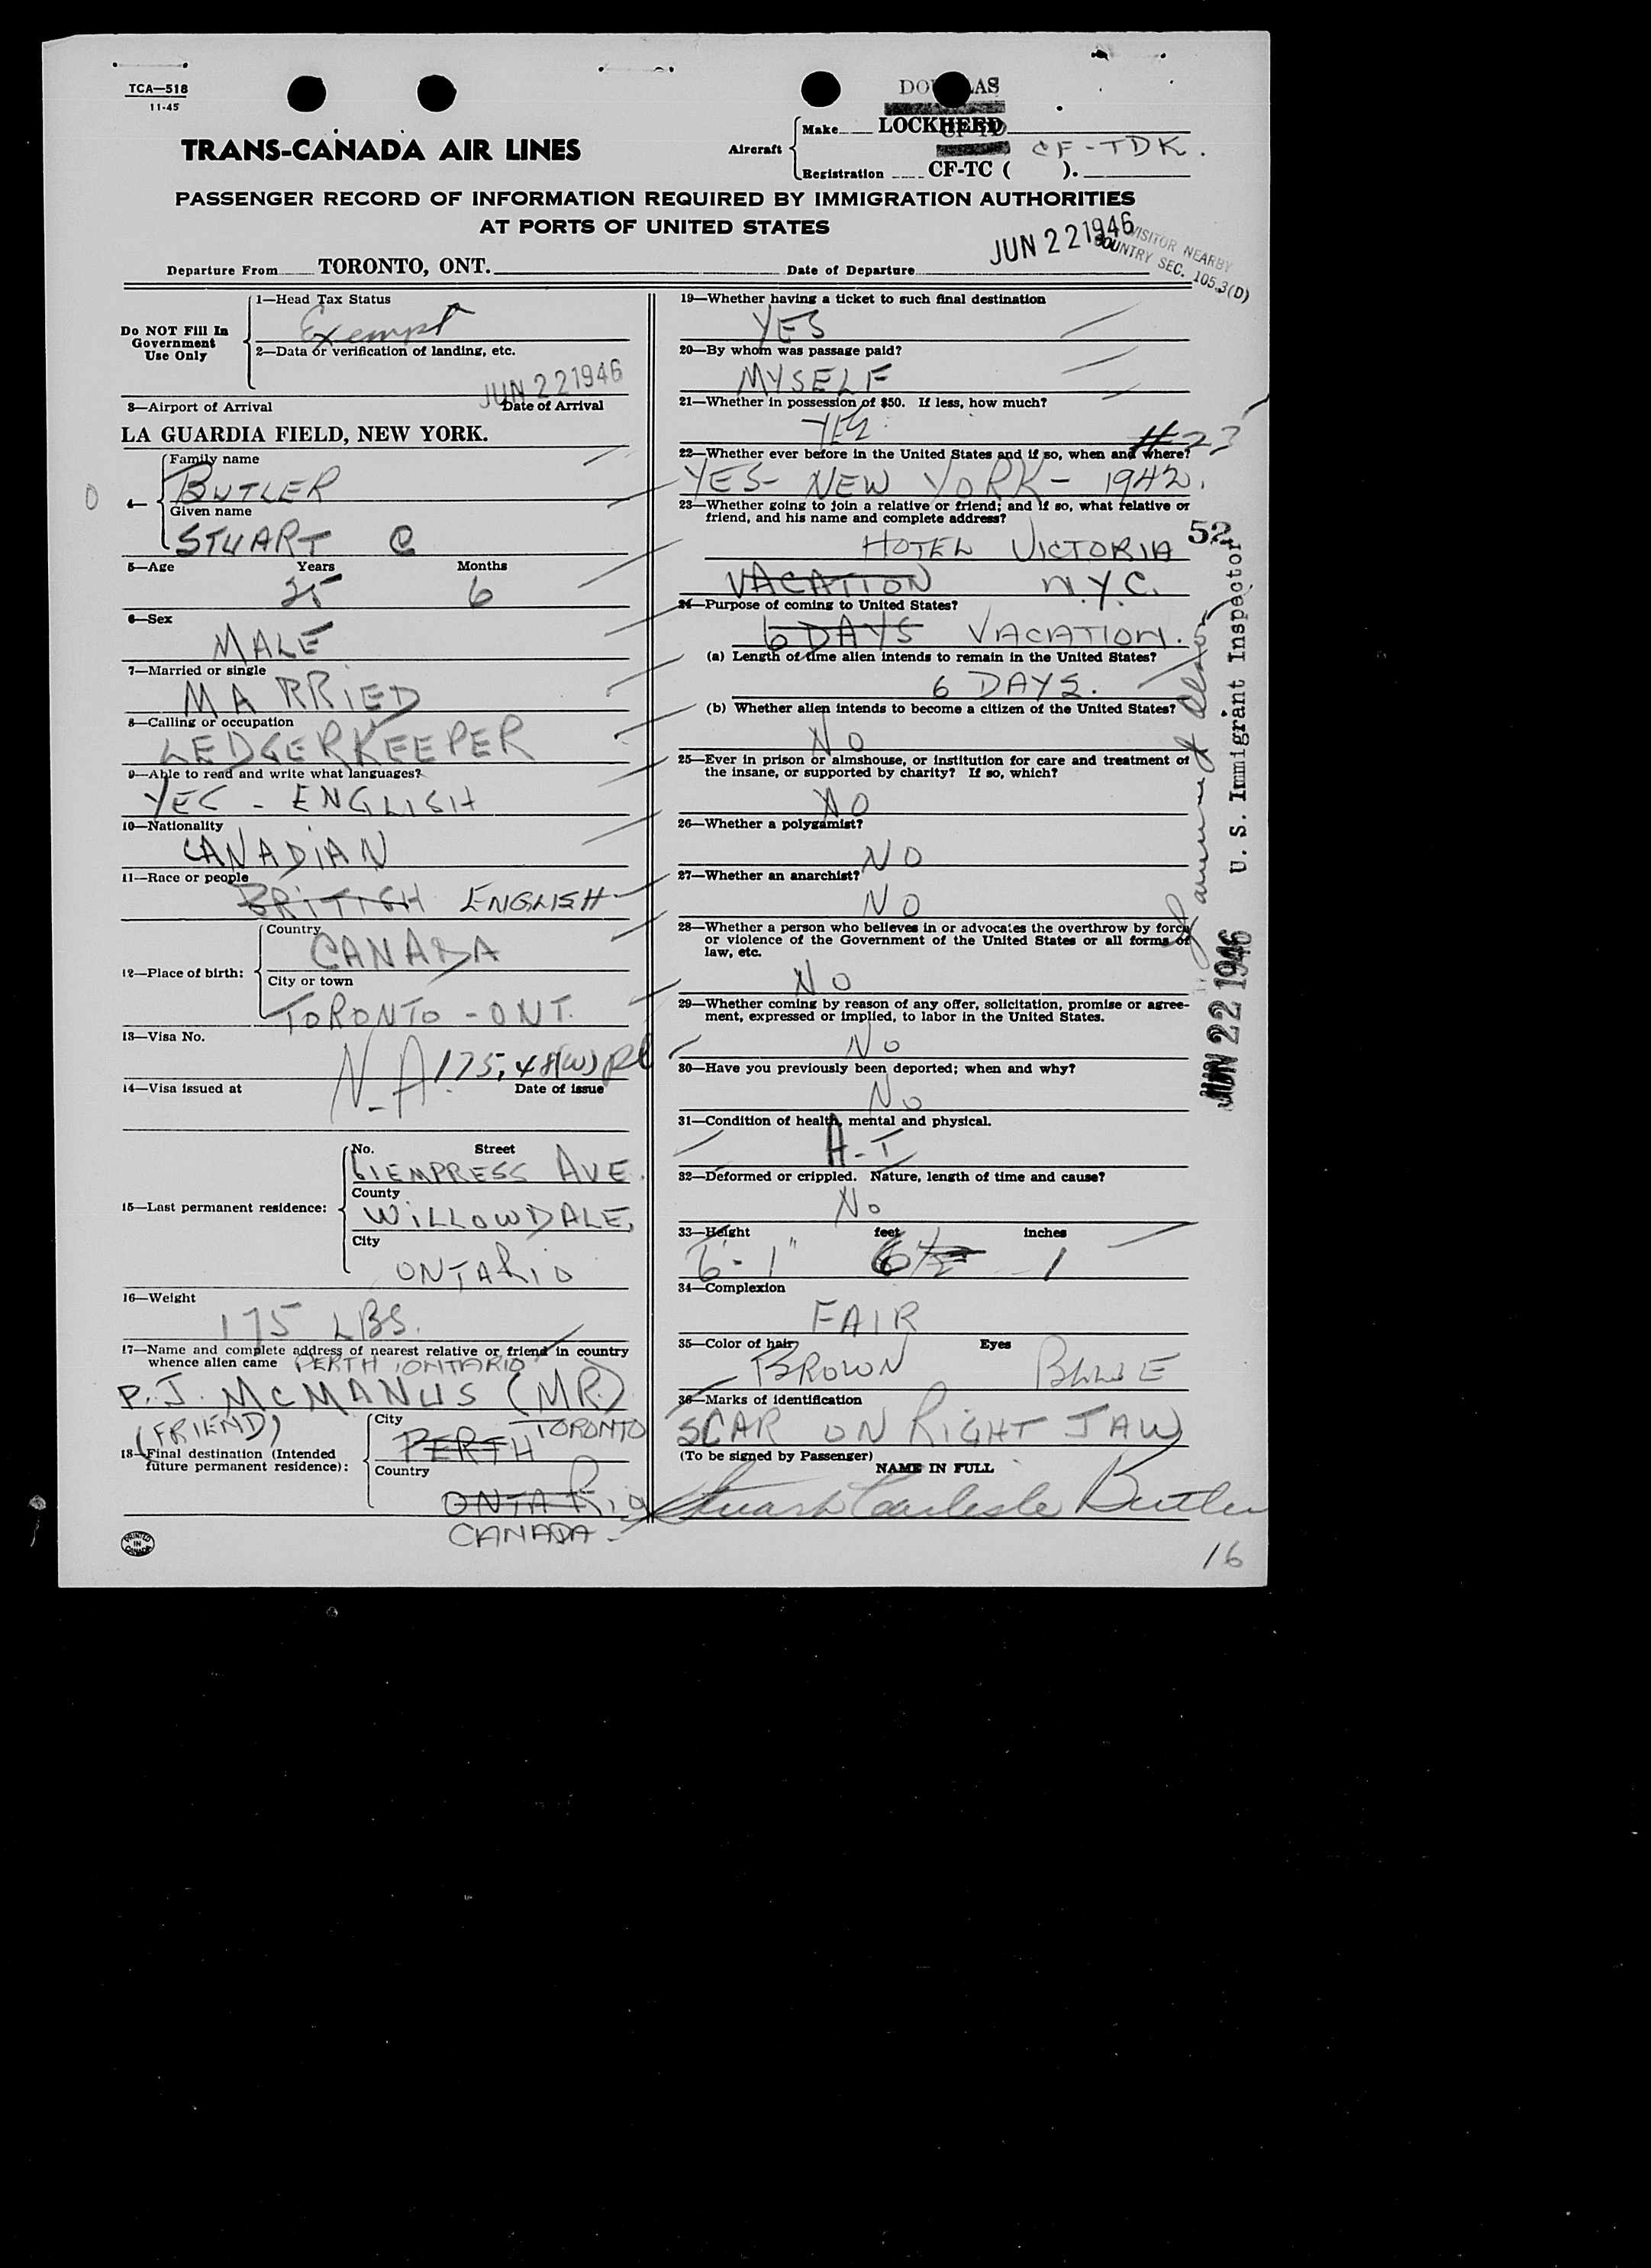 TCA—518
11-45
DOUGLAS
TRANS-CANADA AIR LINES
Aircraft
Make LOCKHEED
Registration CF-TC ( ). CF-TDK.
PASSENGER RECORD OF INFORMATION REQUIRED BY IMMIGRATION AUTHORITIES
AT PORTS OF UNITED STATES
JUN 22 1946
VISITOR NEARBY
COUNTRY SEC. 105.3(D)
Departure From TORONTO, ONT. Date of Departure
Do NOT Fill In
Government
Use Only
1—Head Tax Status
Exempt
2—Data or verification of landing, etc.
JUN 22 1946
3—Airport of Arrival Date of Arrival
LA GUARDIA FIELD, NEW YORK.
4—
Family name
BUTLER
Given name
STUART C
5—Age Years Months
25 6
6—Sex
MALE
7—Married or single
MARRIED
8—Calling or occupation
LEDGERKEEPER
9—Able to read and write what languages?
YES - ENGLISH
10—Nationality
CANADIAN
11—Race or people
BRITISH ENGLISH
12—Place of birth:
Country
CANADA
City or town
TORONTO - ONT.
13—Visa No.
N.A. 175.48(W)
14—Visa issued at Date of issue
15—Last permanent residence:
No. Street
61 EMPRESS AVE.
County
WILLOWDALE,
City
ONTARIO
16—Weight
175 LBS.
17—Name and complete address of nearest relative or friend in country
whence alien came PERTH, ONTARIO
P. J. MCMANUS (MR.)
(FRIEND)
18—Final destination (Intended
future permanent residence):
City
PERTH TORONTO
Country
ONTARIO
CANADA
PRINTED
IN
CANADA
19—Whether having a ticket to such final destination
YES
20—By whom was passage paid?
MYSELF
21—Whether in possession of $50. If less, how much?
YES
#23
22—Whether ever before in the United States and if so, when and where?
YES- NEW YORK - 1942.
23—Whether going to join a relative or friend; and if so, what relative or
friend, and his name and complete address?
HOTEL VICTORIA
VACATION N.Y.C.
24—Purpose of coming to United States?
6 DAYS VACATION.
(a) Length of time alien intends to remain in the United States?
6 DAYS.
(b) Whether alien intends to become a citizen of the United States?
NO
25—Ever in prison or almshouse, or institution for care and treatment of
the insane, or supported by charity? If so, which?
NO
26—Whether a polygamist?
NO
27—Whether an anarchist?
NO
28—Whether a person who believes in or advocates the overthrow by force
or violence of the Government of the United States or all forms of
law, etc.
NO
29—Whether coming by reason of any offer, solicitation, promise or agree-
ment, expressed or implied, to labor in the United States.
NO
30—Have you previously been deported; when and why?
NO
31—Condition of health, mental and physical.
A-1
32—Deformed or crippled. Nature, length of time and cause?
NO
33—Height feet inches
6'-1" 6 1
34—Complexion
FAIR
35—Color of hair Eyes
BROWN BLUE
36—Marks of identification
SCAR ON RIGHT JAW
(To be signed by Passenger)
NAME IN FULL
Stuart Carlisle Butler
16
52
U. S. Immigrant Inspector
JUN 22 1946